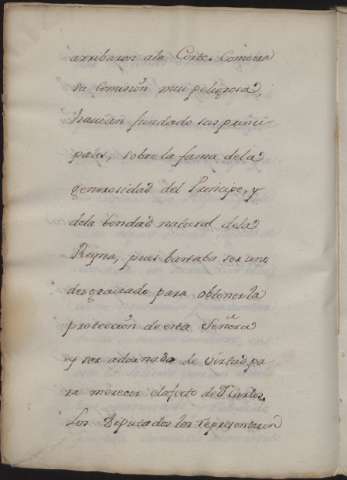 arribaron ala Corte. Como era
su comision mui peligrosa,
havian fundado sus princi-
pales, sobre la fama dela
generosidad del Principe, y
dela bondad natural dela
Reyna, pues bastaba ser un
desgraciado para obtener la
protección de esta Señora
y ser adornado de virtud pa
ra merecer el afecto de Carlos.
Los Diputados los representaron